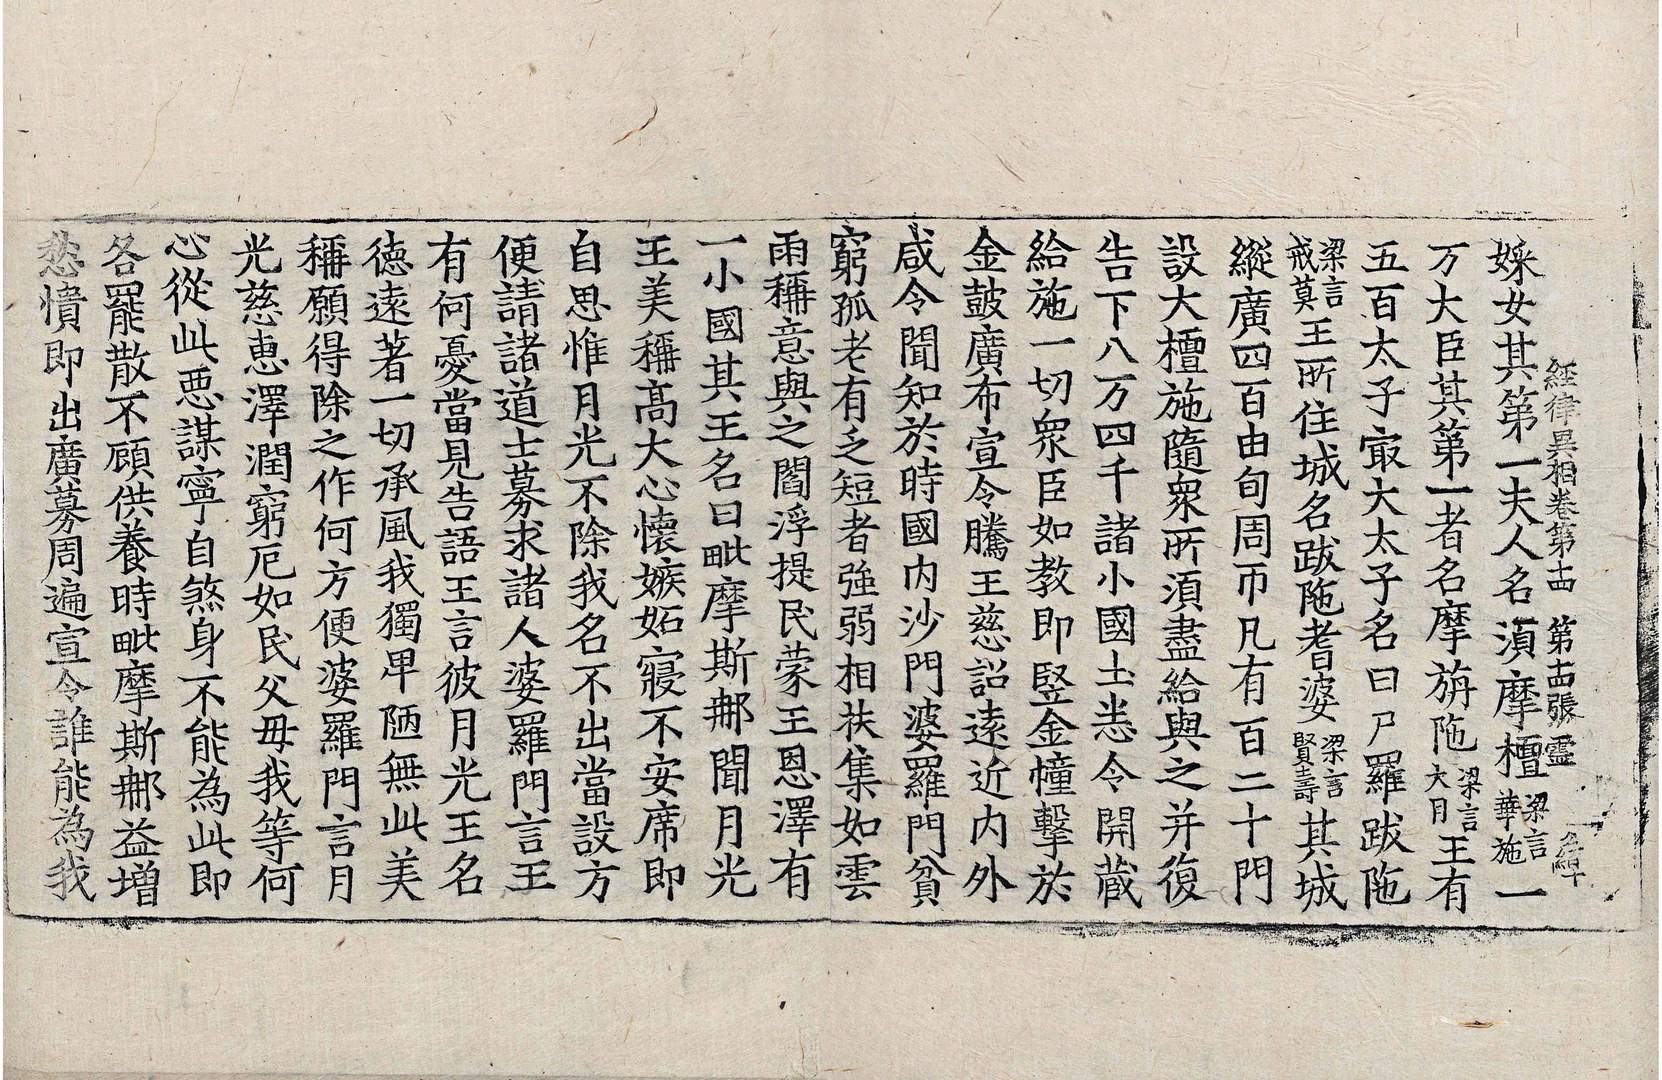 經律異相卷第十四 第十四張 靈
婇女其第一夫人名湏摩檀梁言華施一
万大臣其第一者名摩旃陁梁言大月王有
五百太子㝡大太子名曰尸羅跋陁
梁言戒莫王所住城名跋陁耆婆梁言賢壽其城
縱廣四百由旬周帀凡有百二十門
設大檀施隨衆所湏盡給與之并復
告下八万四千諸小國土悉令開蔵
給施一切衆臣如教即竪金幢擊於
金鼓廣布宣令騰王慈詔遠近内外
咸令聞知於時國内沙門婆羅門貧
窮孤老有乏短者強弱相扶集如雲
雨稱意與之閻浮提民蒙王恩澤有
一小國其王名曰毗摩斯那聞月光
王美稱髙大心懷嫉妬寢不安席即
自思惟月光不除我名不出當設方
便請諸道士募求諸人婆羅門言王
有何憂當見告語王言彼月光王名
徳遠著一切承風我獨卑陋無此美
稱願得除之作何方便婆羅門言月
光慈恵澤潤窮厄如民父母我等何
心從此惡謀寧自煞身不能為此即
各罷散不顧供養時毗摩斯那益増
愁憒即出廣募周遍宣令誰能為我